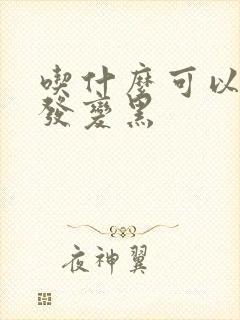 喫什麼可以
發變黑
夜神翼